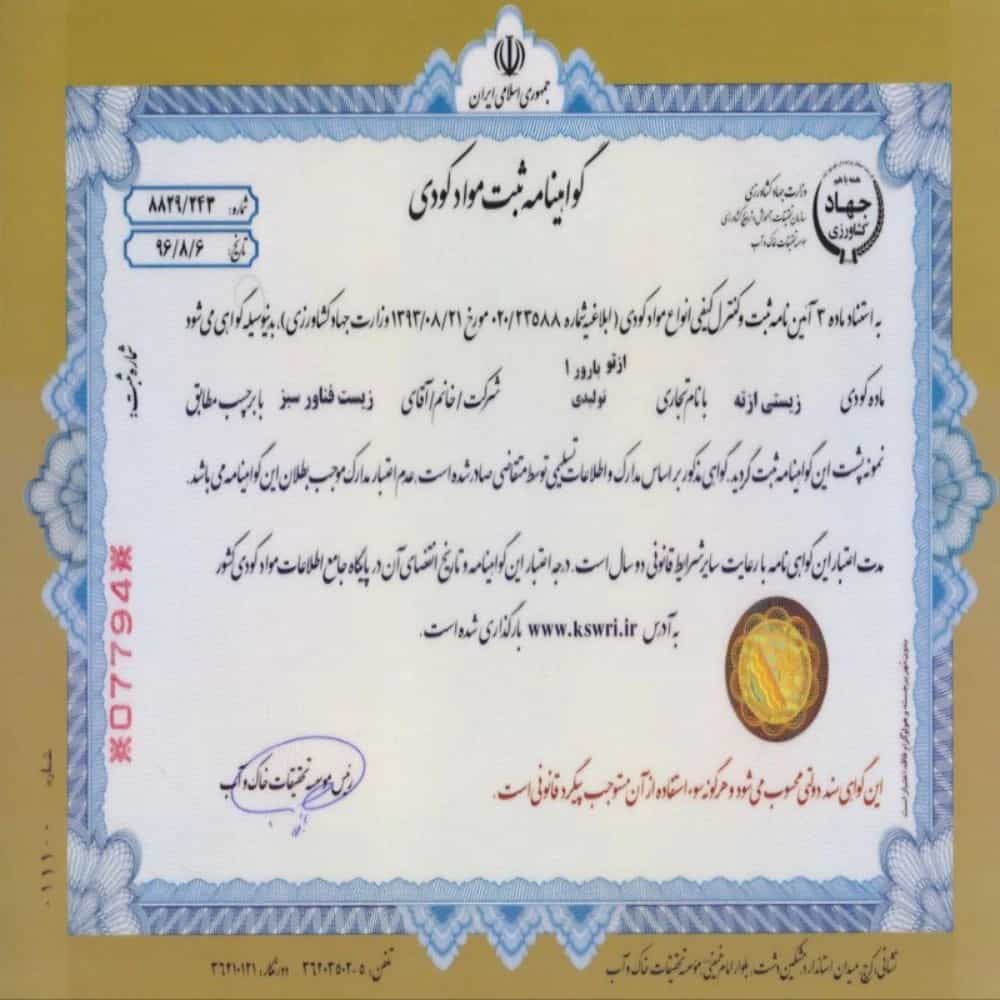 جمهوری اسلامی ایران
همه با هم
جهاد
کشاورزی
وزارت جهاد کشاورزی
سازمان تحقیقات، آموزش و ترویج کشاورزی
موسسه تحقیقات خاک و آب
گواهینامه ثبت مواد کودی
شماره: ۸۸۲۹/۲۴۳
تاریخ: ۹۶/۸/۶
به استناد ماده ۳ آیین نامه ثبت و کنترل کیفی انواع مواد کودی (ابلاغیه شماره ۰۲۰/۲۳۵۸۸ مورخ ۱۳۹۳/۰۸/۲۱ وزارت جهاد کشاورزی)، بدینوسیله گواهی می شود
ماده کودی زیستی ازته با نام تجاری ازتو بارور ۱ تولیدی شرکت/خانم/آقای زیست فناور سبز با برچسب مطابق
نمونه پشت این گواهینامه ثبت گردید. گواهی مذکور بر اساس مدارک و اطلاعات تسلیمی توسط متقاضی صادر شده است. عدم اعتبار مدارک موجب بطلان این گواهینامه می باشد.
مدت اعتبار این گواهی نامه با رعایت سایر شرایط قانونی دو سال است. درجه اعتبار این گواهینامه و تاریخ انقضای آن در پایگاه جامع اطلاعات مواد کودی کشور
به آدرس www.kswri.ir بارگذاری شده است.
شماره ثبت:
※07794※
رئیس موسسه تحقیقات خاک و آب
این گواهی سند دولتی محسوب می شود و هرگونه سوء استفاده از آن مستوجب پیگرد قانونی است.
بدون مهر برجسته و هولوگرام فاقد اعتبار است
شماره
۰۱۱۱۰۰
نشانی: کرج، میدان استاندارد، مشکین دشت، بلوار امام خمینی، موسسه تحقیقات خاک و آب
تلفن: ۵-۳۶۲۰۳۵۰۲ دورنگار: ۳۶۲۱۰۱۲۱